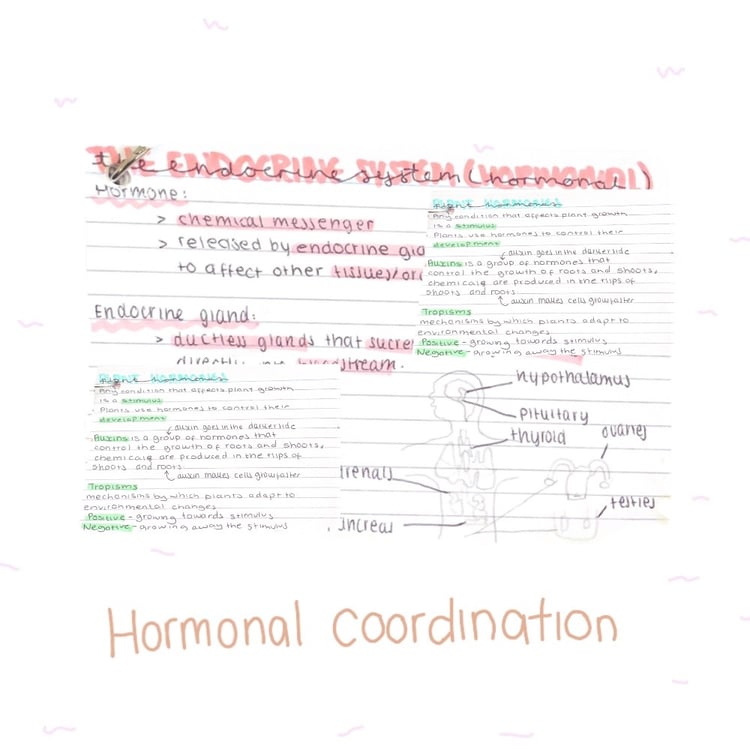 the endocrine system (hormonal)
Hormone:
> chemical messenger
> released by endocrine gla
to affect other tissues/or
Endocrine gland:
> ductless glands that sucre
bloodstream.
Plant hormones
· Any condition that affects plant growth
is a stimulus
· Plants use hormones to control their
development
auxin goes in the darker side
Auxins is a group of hormones that
control the growth of roots and shoots,
chemicals are produced in the tips of
shoots and roots
auxin makes cells grow faster
Tropisms
mechanisms by which plants adapt to
environmental changes
Positive - growing towards stimulus
Negative - growing away the stimulus
Plant hormones
· Any condition that affects plant growth
is a stimulus
· Plants use hormones to control their
development
auxin goes in the darker side
Auxins is a group of hormones that
control the growth of roots and shoots,
chemicals are produced in the tips of
shoots and roots
auxin makes cells grow faster
Tropisms
mechanisms by which plants adapt to
environmental changes
Positive - growing towards stimulus
Negative - growing away the stimulus
hypothalamus
pituitary
thyroid
ovaries
renals
testies
increas
Hormonal coordination